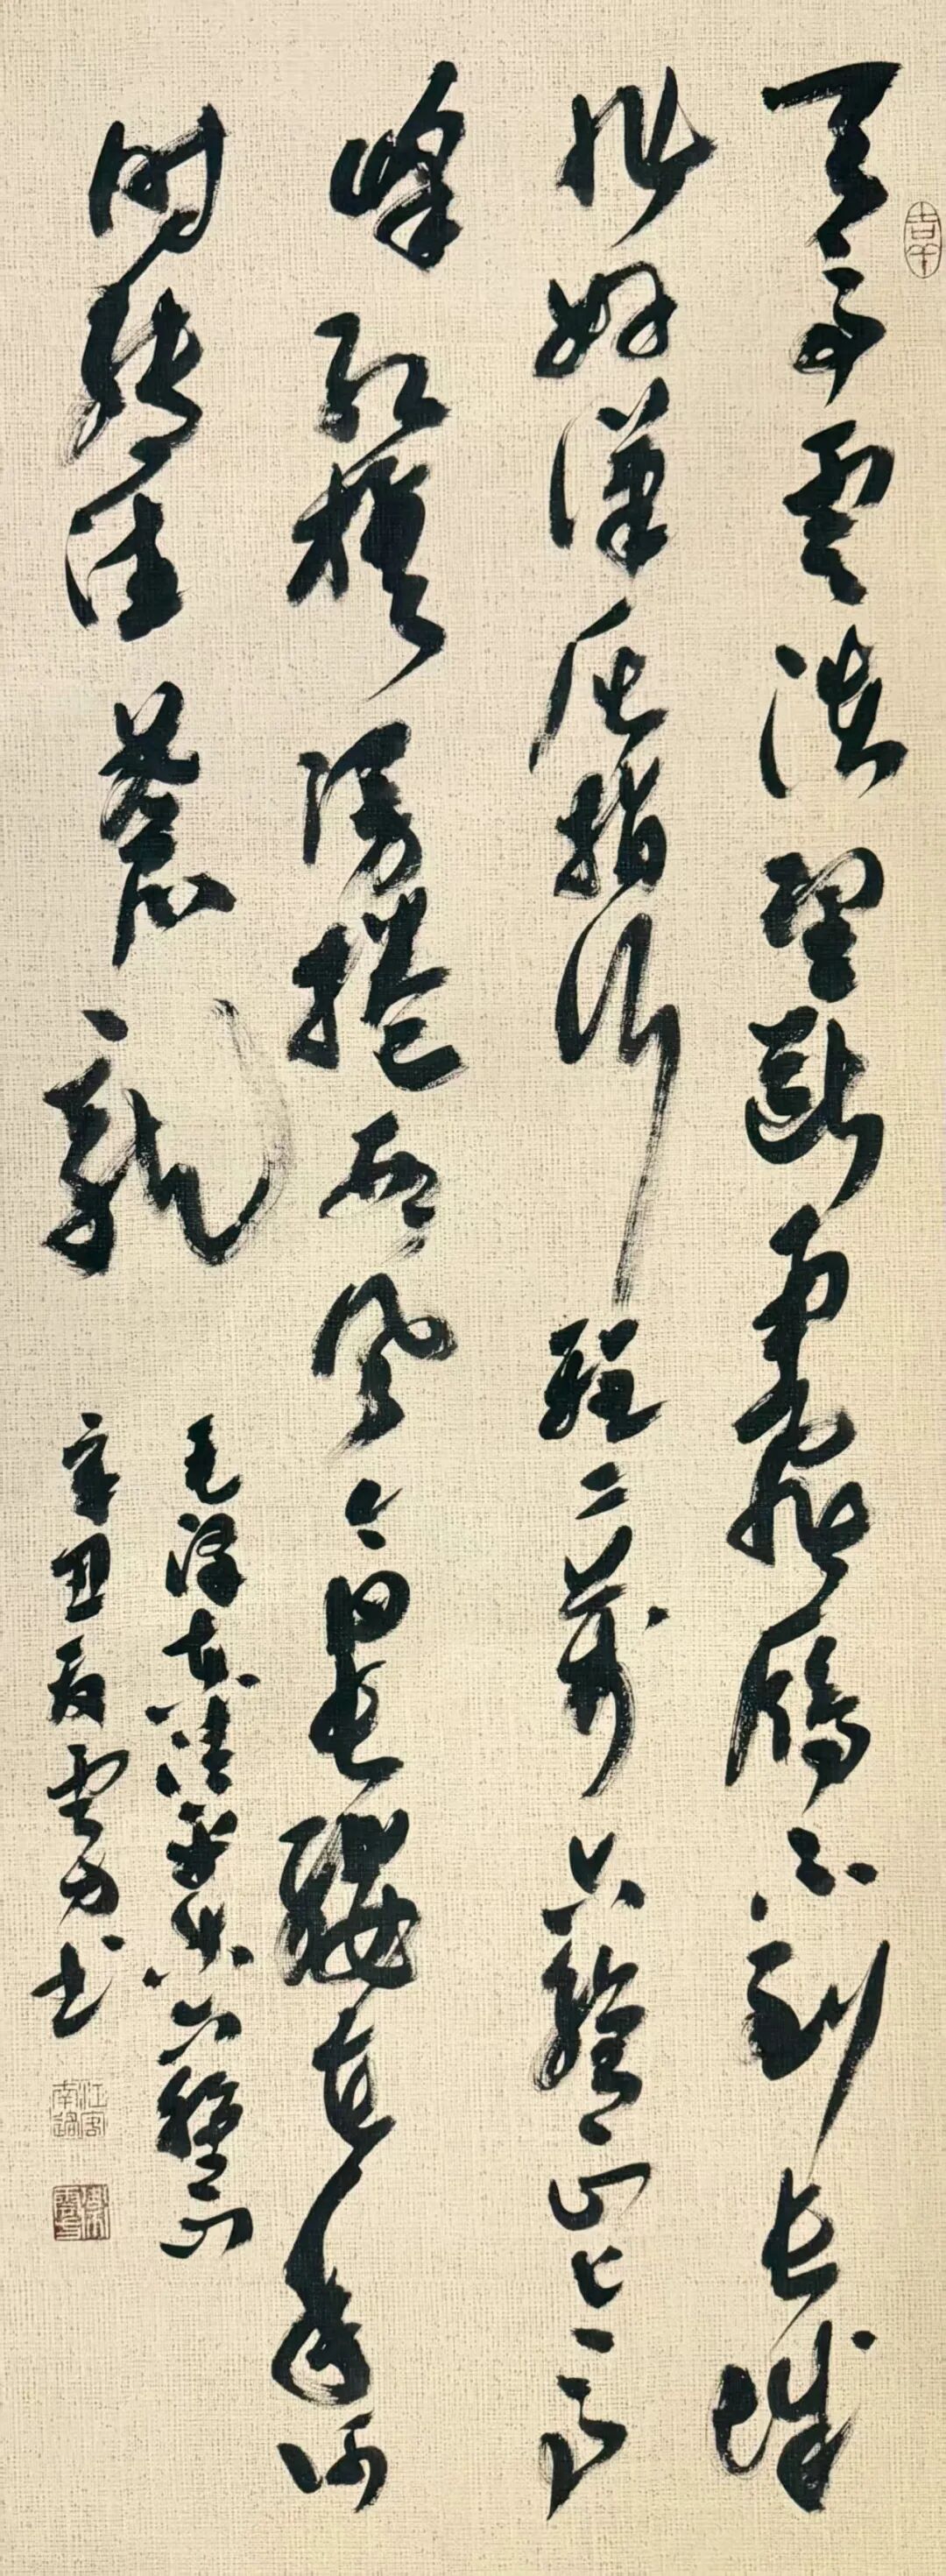 天高雲淡望斷南飛鴈不到長城
非好漢屈指行程二萬六盤山上高
峰紅旗漫捲西風今日長纓在手何
時縛住蒼龍
毛澤東清平樂六盤山
辛丑夏雲方书